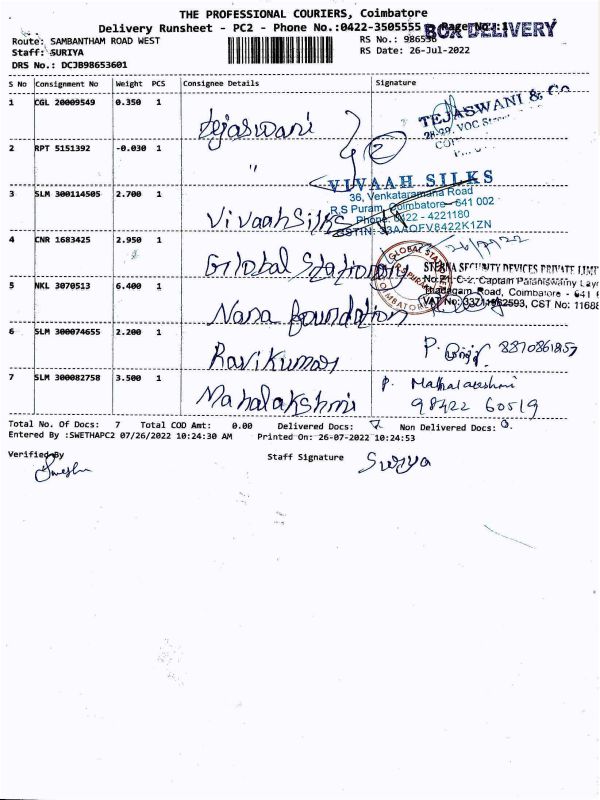 THE PROFESSIONAL COURIERS, Coimbatore
Delivery Runsheet - PC2 - Phone No.:0422-3505555 Page No.:1
BOX DELIVERY
Route: SAMBANTHAM ROAD WEST RS No.: 986536
Staff: SURIYA RS Date: 26-Jul-2022
DRS No.: DCJB98653601
S No Consignment No Weight PCS Consignee Details Signature
1 CGL 20009549 0.350 1 Tejaswani
TEJASWANI & Co
28-29, VOC
2 RPT 5151392 -0.030 1 "
VIVAAH SILKS
36, Venkataramana Road
R.S Puram, Coimbatore - 641 002
Phone: 0422 - 4221180
GSTIN: 33AAQFV8422K1ZN
3 SLM 300114505 2.700 1 Vivaah Silks
4 CNR 1683425 2.950 1 Global Stationary
26/7/22
GLOBAL
R.S PURAM
COIMBATORE
STERNA SECURITY DEVICES PRIVATE LIMIT
No:21, C-2, Captain Palaniswamy Layo
Thadagam Road, Coimbatore - 641
5 NKL 3070513 6.400 1 Nana foundation
6 SLM 300074655 2.200 1 Ravi Kumar
8870861857
7 SLM 300082758 3.500 1 Mahalakshmi
P. Mahalakshmi
98422 60519
Total No. Of Docs: 7 Total COD Amt: 0.00 Delivered Docs: 7 Non Delivered Docs: 0
Entered By :SWETHAPC2 07/26/2022 10:24:30 AM Printed On: 26-07-2022 10:24:53
Verified By Staff Signature Suriya